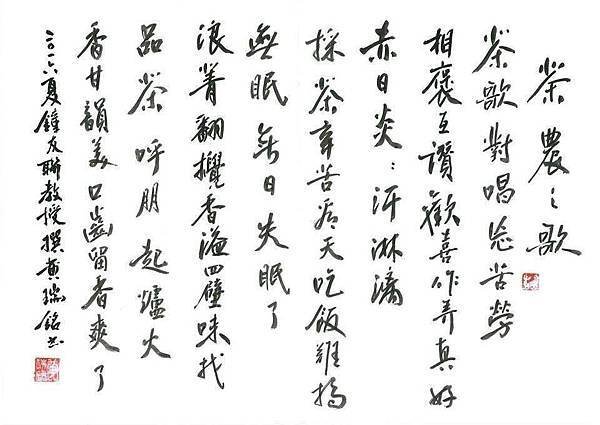 茶農之歌
茶歌對唱忘苦勞
相褒互讚歡喜作弄真好
赤日炎：汗淋漓
採茶辛苦看天吃飯難搞
無眠無日失眠了
浪菁翻攪香溢四壁味找
品茶呼朋起爐火
香甘韻美口齒留香爽了
二〇一六夏鍾友聯教授撰黃瑞銘書